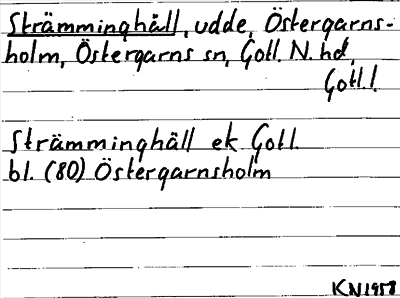 Strämminghäll, udde, Östergarns-
holm, Östergarns sn, Gotl. N. hd,
Gotl. l.
Strämminghäll ek Gotl.
bl. (80) Östergarnsholm
KN 1958